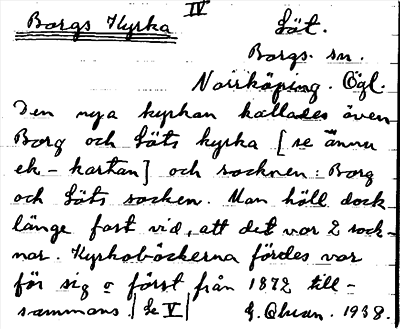 IV
Borgs Kyrka Löt.
Borgs. sn.
Norrköping. Ögl.
Den nya kyrkan kallades även
Borg och Löts kyrka [se ännu
ek-kartan] och socknen: Borg
och Löts socken. Man höll dock
länge fast vid, att det var 2 sock-
nar. Kyrkoböckerna fördes var
för sig o först från 1872 till-
sammans. [Se V] 1938.